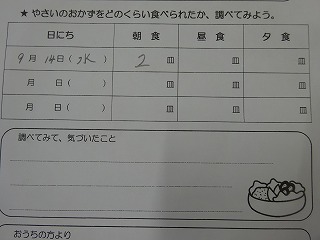 ★ やさいのおかずをどのくらい食べられたか、調べてみよう。
日にち 朝 食 昼 食 夕 食
9 月 14 日 ( 水 ) 2 皿 皿 皿
月 日 ( ) 皿 皿 皿
月 日 ( ) 皿 皿 皿
調べてみて、気づいたこと
おうちの方より